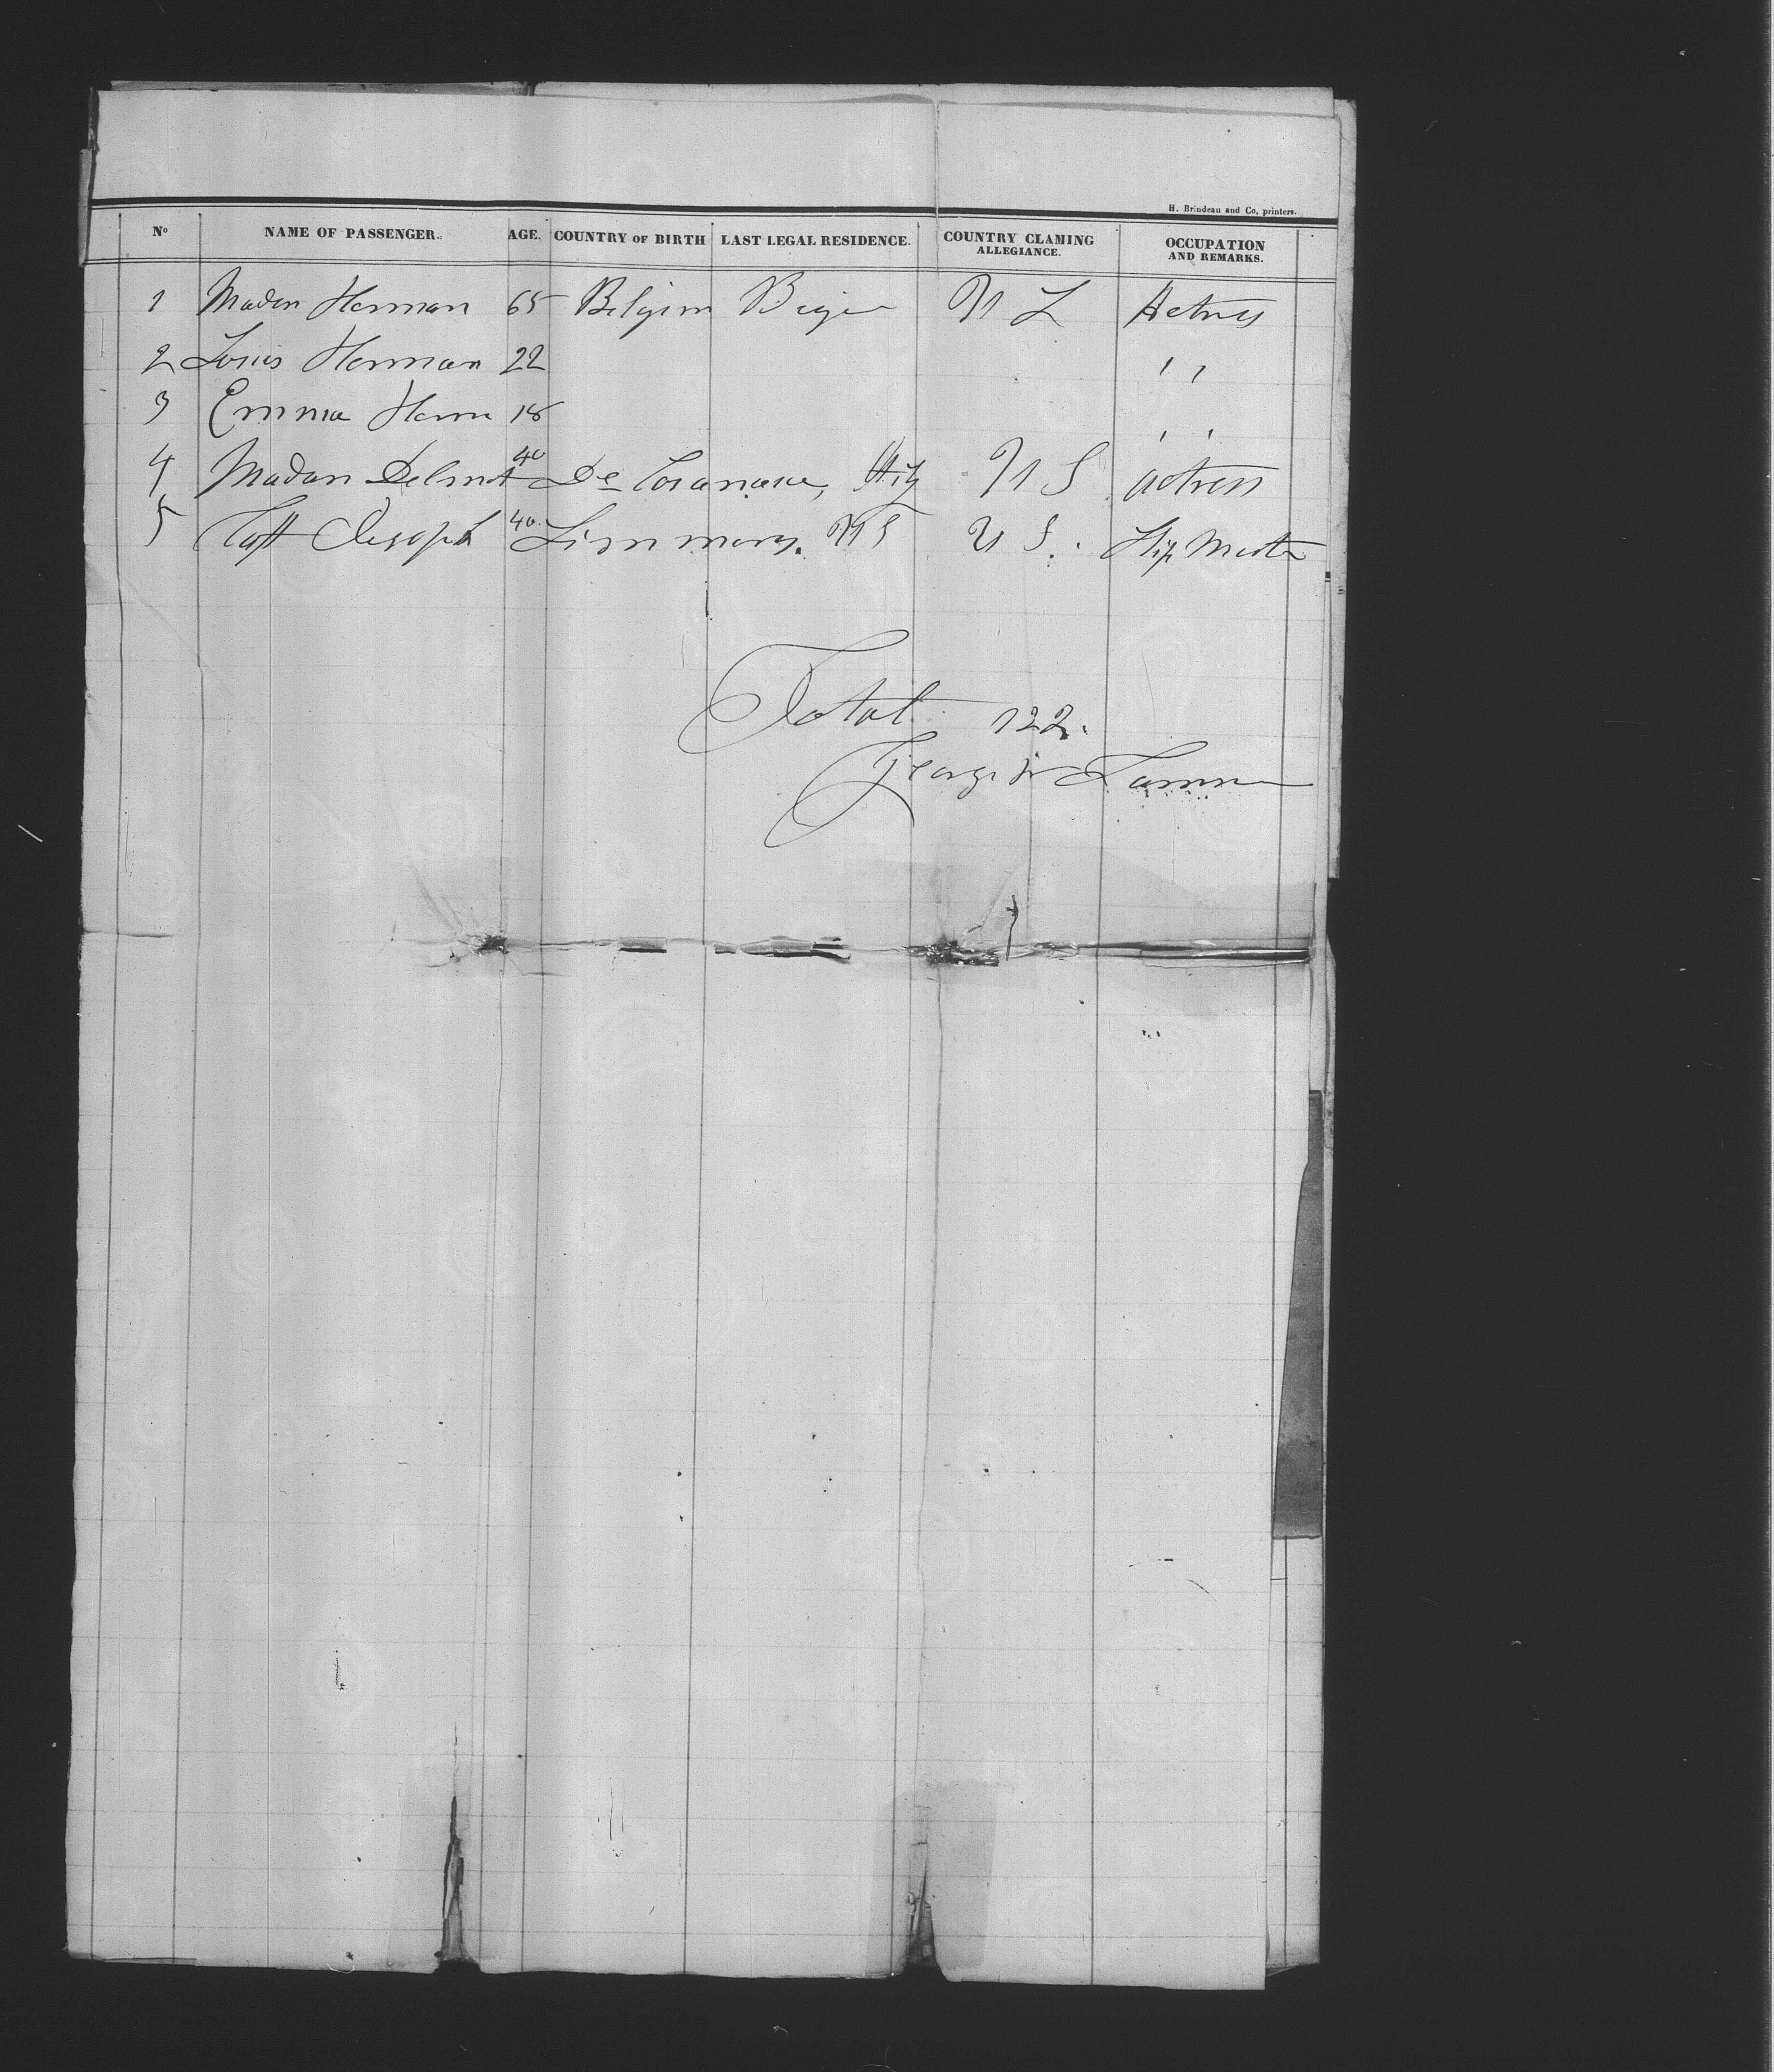 H. Brindeau and Co, printers.
No NAME OF PASSENGER. AGE. COUNTRY OF BIRTH LAST LEGAL RESIDENCE. COUNTRY CLAMING ALLEGIANCE. OCCUPATION AND REMARKS.
1 Madan Herman 65 Belgim U S Actress
2 Louis Herman 22 " 
3 Emma Herm 18 "
4 Madan Delmot 40 De U S actress
5 Joseph 40 U S U S. Ship Master
Total 122.
George W